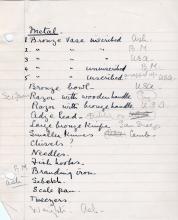 Metal.
1 Bronze Vase inscribed Ash.
2 " " " B.M
3 " " " USA
4 " " uninscribed B.M
5 " " Unscribed USA.
Bronze bowl - USA
Razor with wooden handle
Razor with bronze handle USA
Adze head -
Large bronze Knife -
Smaller Knives - Camb.
Chisels?
Needles.
Fish hooks.
Branding iron
B.M
Ash
Scale pan.
Tweezers.
Weights Ash.